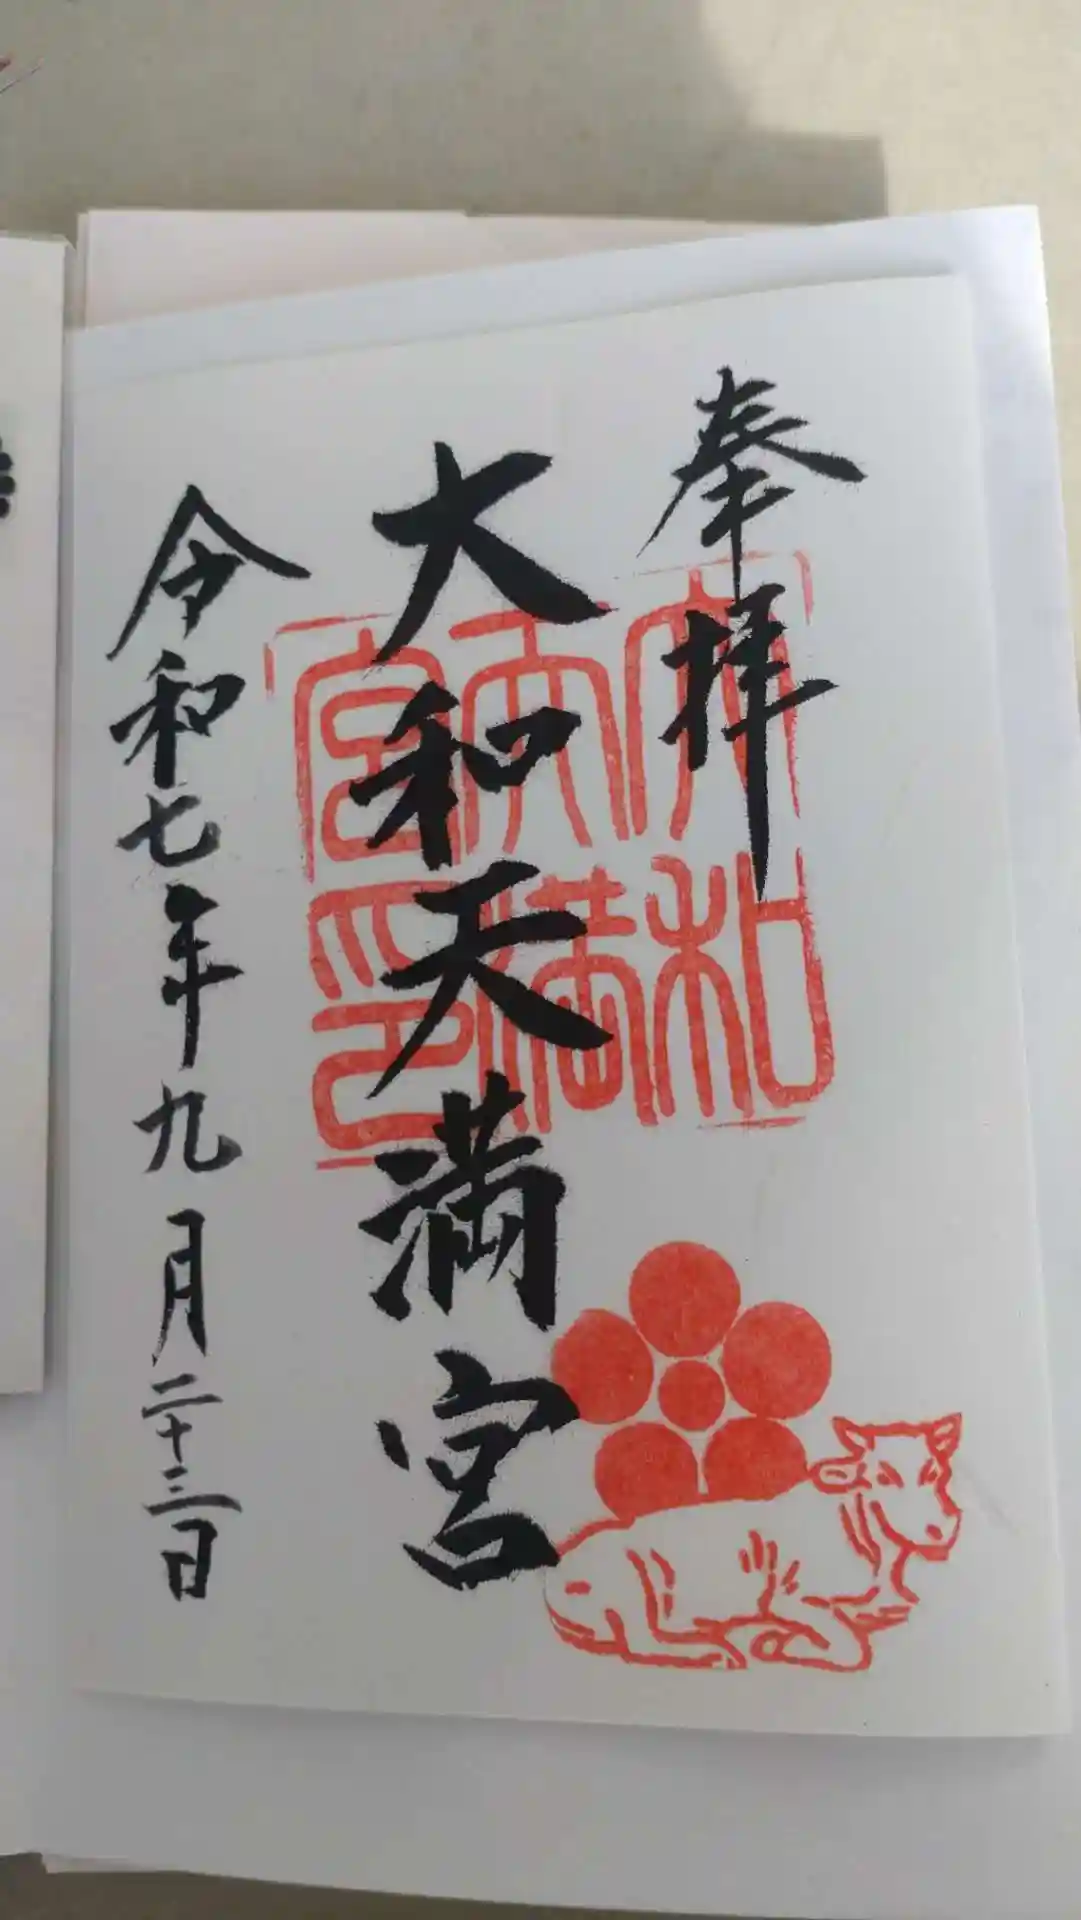 奉拝
大和天満宮
令和七年九月二十三日
大和
天満
宮印